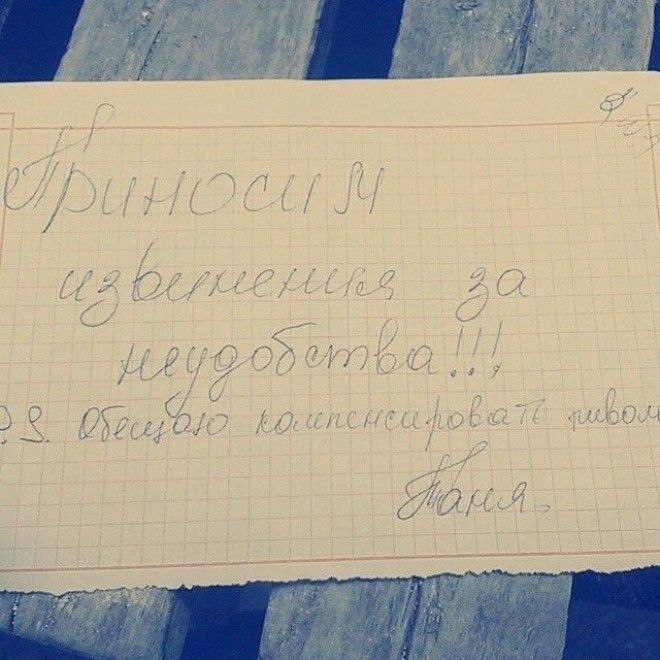 Приносим
извинения за
неудобства!!!
P.S. Обещаю компенсировать пивом
Таня.